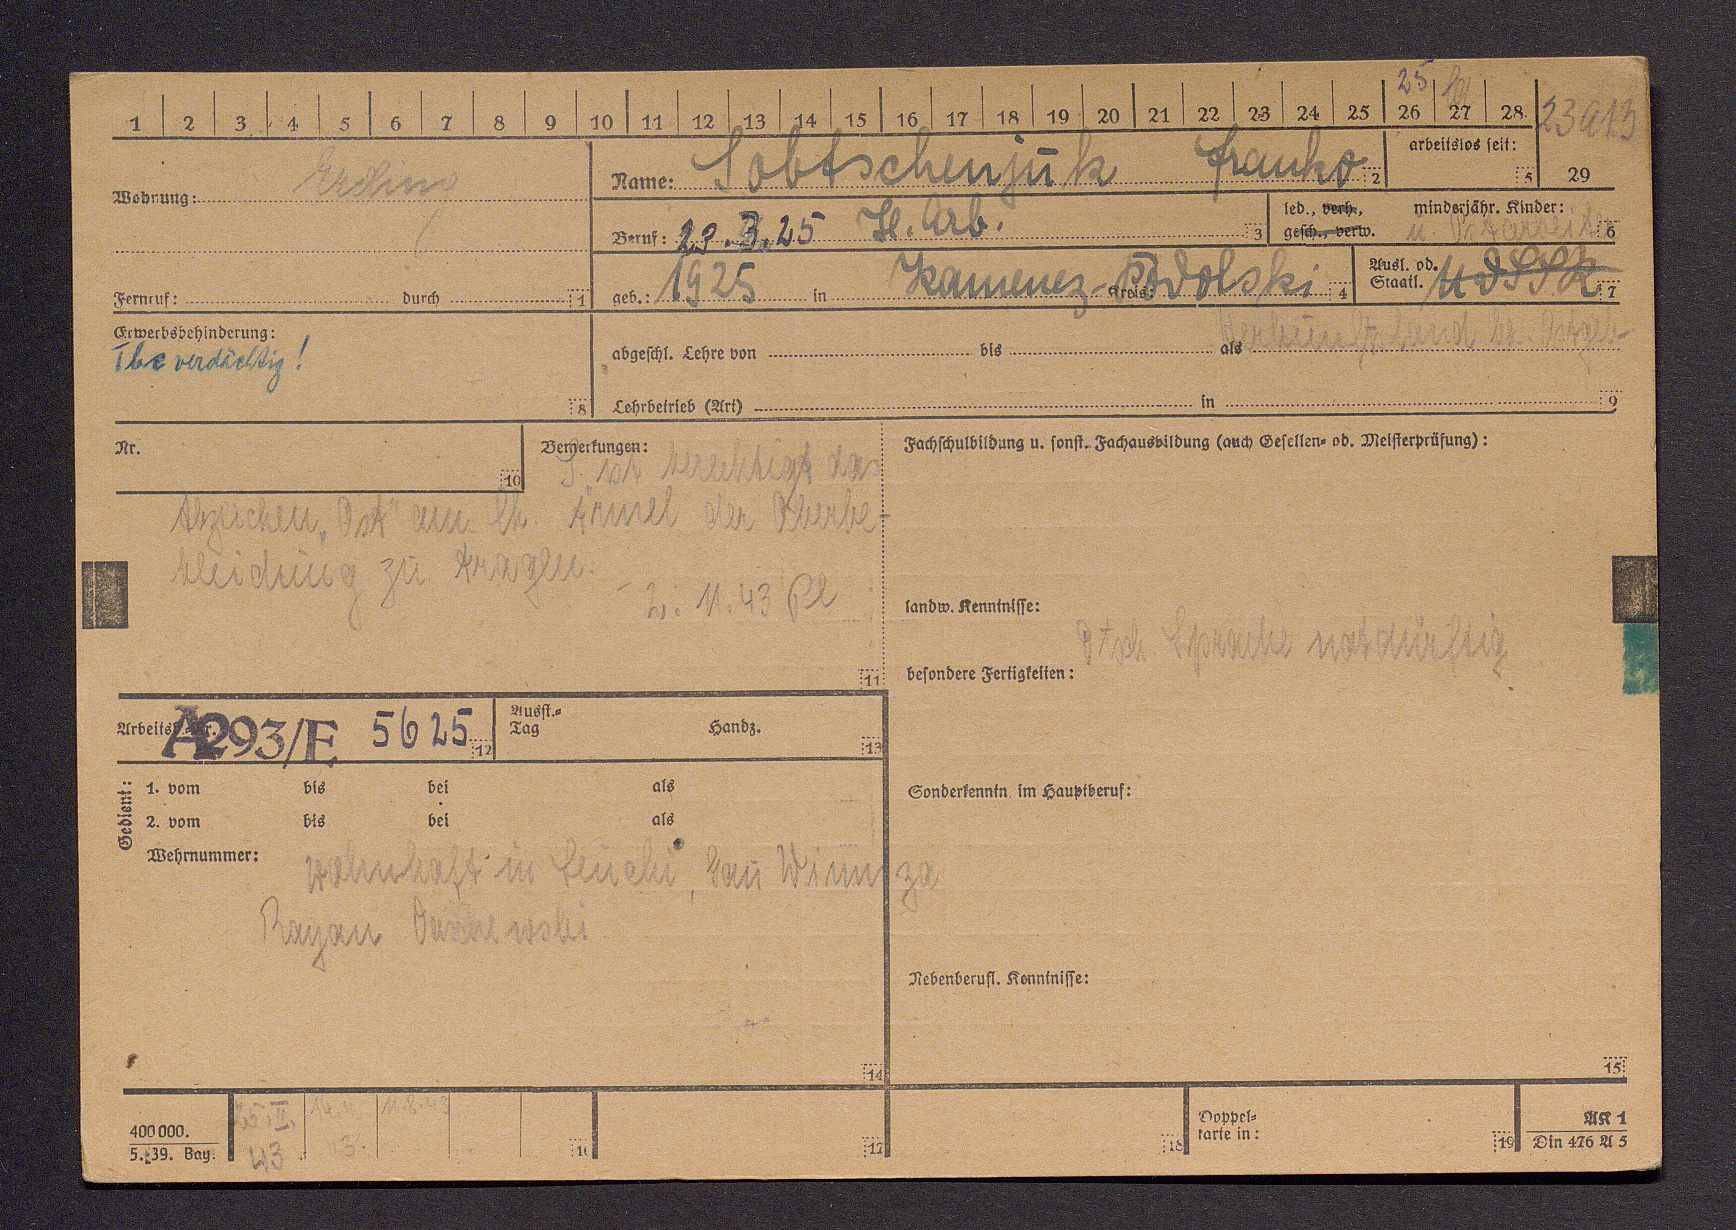 25
1 2 3 4 5 6 7 8 9 10 11 12 13 14 15 16 17 18 19 20 21 22 23 24 25 26 27 28. 23913
Wohnung: Erding
Name: Sobtschenjuk Franko 2
arbeitslos seit: 5 29
Beruf: 29.3.25 H. Arb. 3
led., verh., minderjähr. Kinder:
gesch., verw. 6
Fernruf: durch 1
geb.: 1925 in Kamenez-Podolski Kreis: 4
Ausl. od. Staatl. UdSSR 7
Erwerbsbehinderung:
Tbc verdächtig! 8
abgeschl. Lehre von bis als
Lehrbetrieb (Art) in 9
Nr. 10
Bemerkungen:
S. ist berechtigt das
Abzeichen "Ost" am lk. Ärmel der Oberbe-
kleidung zu tragen.
2. 11. 43 Pl
11
Fachschulbildung u. sonst. Fachausbildung (auch Gesellen- od. Meisterprüfung):
landw. Kenntnisse:
dtsch. Sprache notdürftig
besondere Fertigkeiten:
Arbeitsb.-Nr. A293/E 5625 12
Ausst.-Tag Handz. 13
Gedient:
1. vom bis bei als
2. vom bis bei als
Wehrnummer:
wohnhaft in Gau Winniza
Rayon
14
Sonderkenntn. im Hauptberuf:
Nebenberufl. Kenntnisse:
15
400 000.
5. 39. Bay.
25. II. 43
11.8.43
16 17 18
Doppelkarte in: 19
AK 1
Din 476 A 5